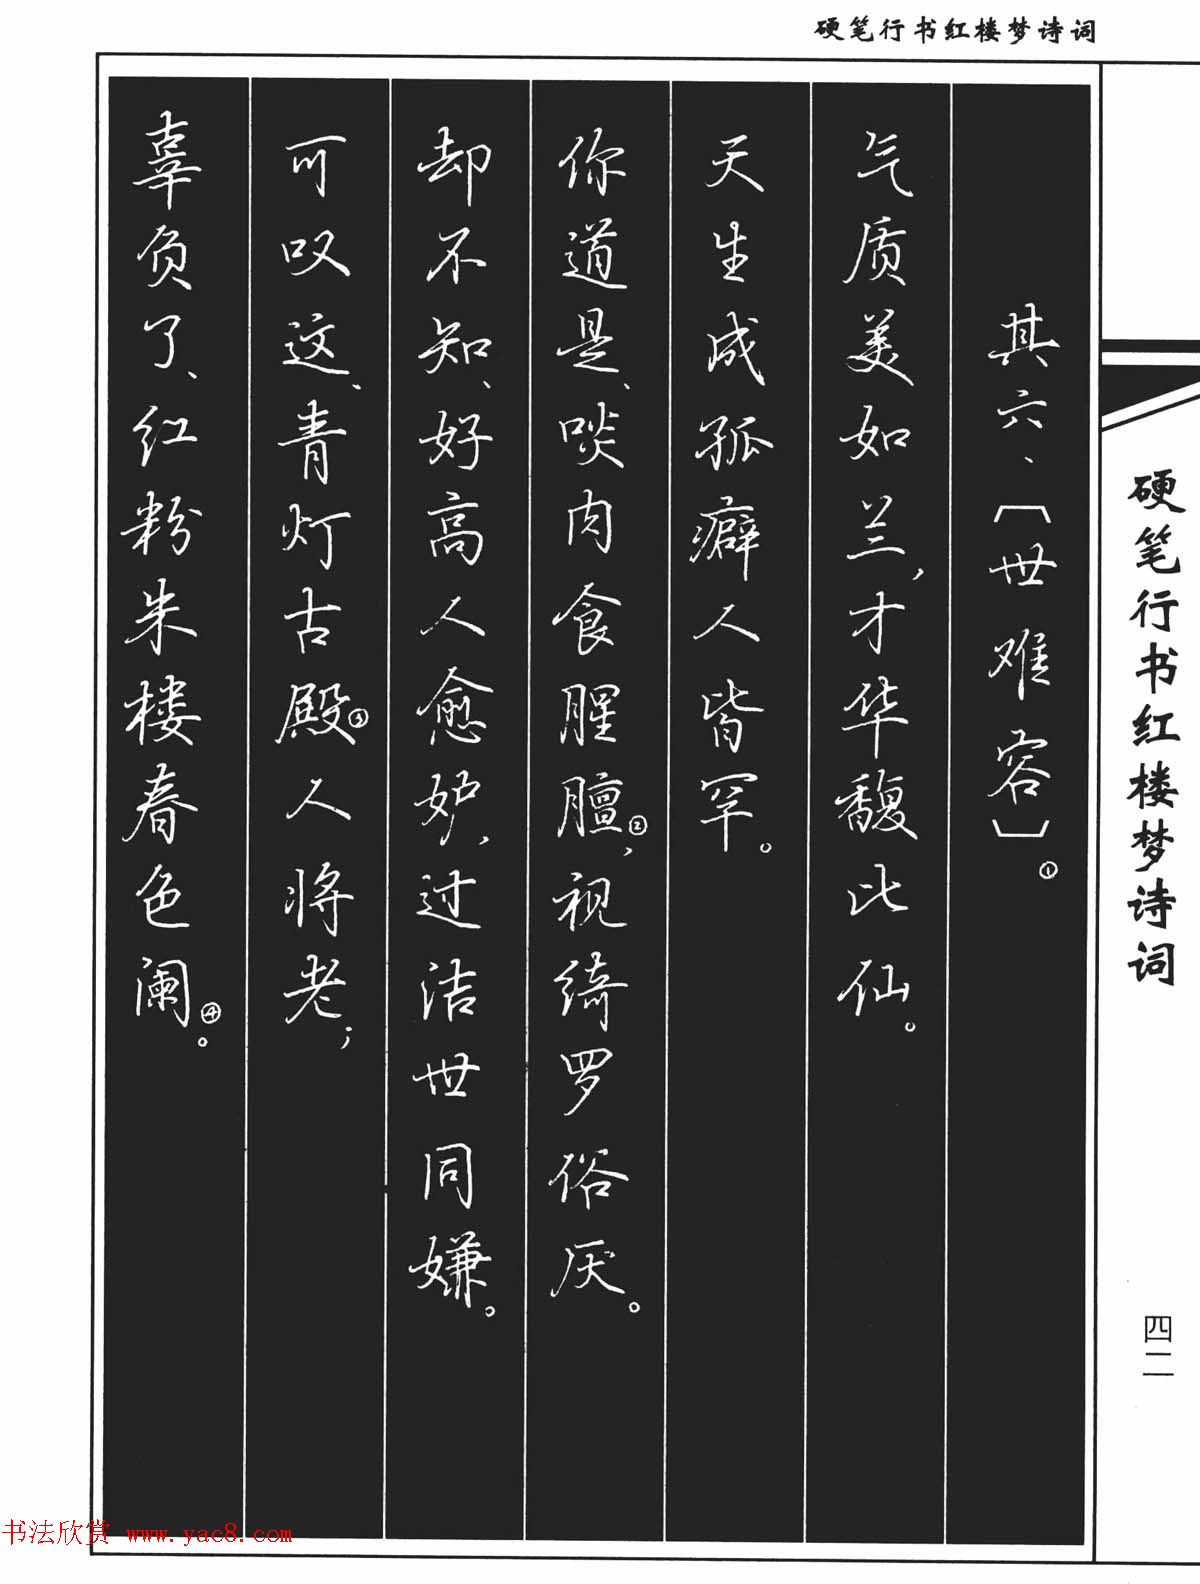 硬笔行书红楼梦诗词
硬笔行书红楼梦诗词
四二
其六、〔世难容〕①
气质美如兰，才华馥比仙。
天生成孤癖人皆罕。
你道是、啖肉食腥膻②，视绮罗俗厌。
却不知、好高人愈妒，过洁世同嫌。
可叹这、青灯古殿③人将老；
辜负了、红粉朱楼春色阑④。
书法欣赏 www.yac8.com